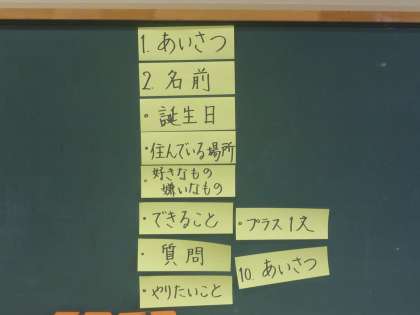 1. あいさつ
2. 名前
・誕生日
・住んでいる場所
・好きなもの
嫌いなもの
・できること
・プラス1文
・質問
10. あいさつ
・やりたいこと